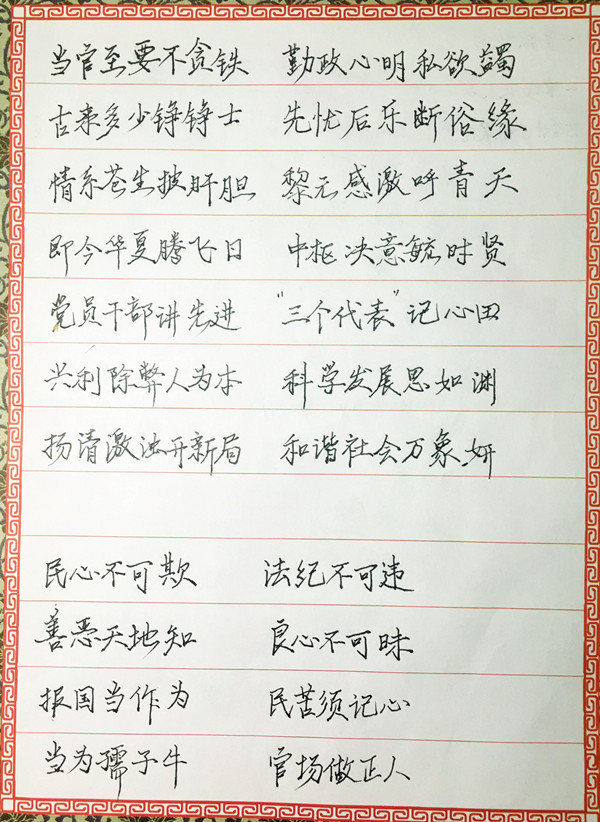 当官至要不贪钱 勤政心明私欲蠲
古来多少铮铮士 先忧后乐断俗缘
情系苍生披肝胆 黎元感激呼青天
即今华夏腾飞日 中枢决意毓时贤
党员干部讲先进 “三个代表”记心田
兴利除弊人为本 科学发展思如渊
扬清激浊开新局 和谐社会万象妍
民心不可欺 法纪不可违
善恶天地知 良心不可昧
报国当作为 民苦须记心
当为孺子牛 官场做正人